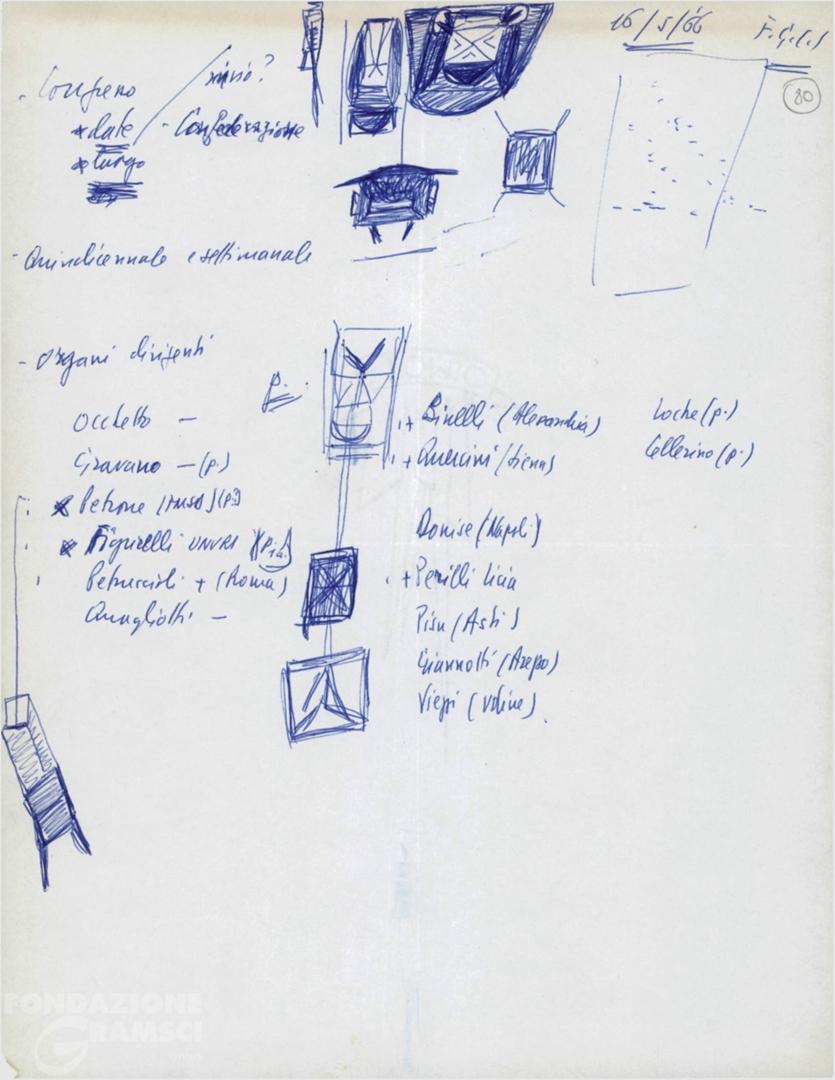 16/5/66 F.G.C.I
80
- Congresso
rinvio?
* date - Confederazione
* luogo
- Quindicennale e settimanale
- Organi dirigenti
p.
Occhetto —
Gravano — (p.)
Petrone (p.)
Figurelli UNURI
Petruccioli + (Roma)
Quagliotti —
+ Binelli (Alessandria)
+ Quercini (Siena)
Donise (Napoli)
+ Perilli Licia
Pisu (Asti)
Giannotti (Arezzo)
Viezzi (Udine)
Loche (p.)
Cellerino (p.)
FONDAZIONE
GRAMSCI